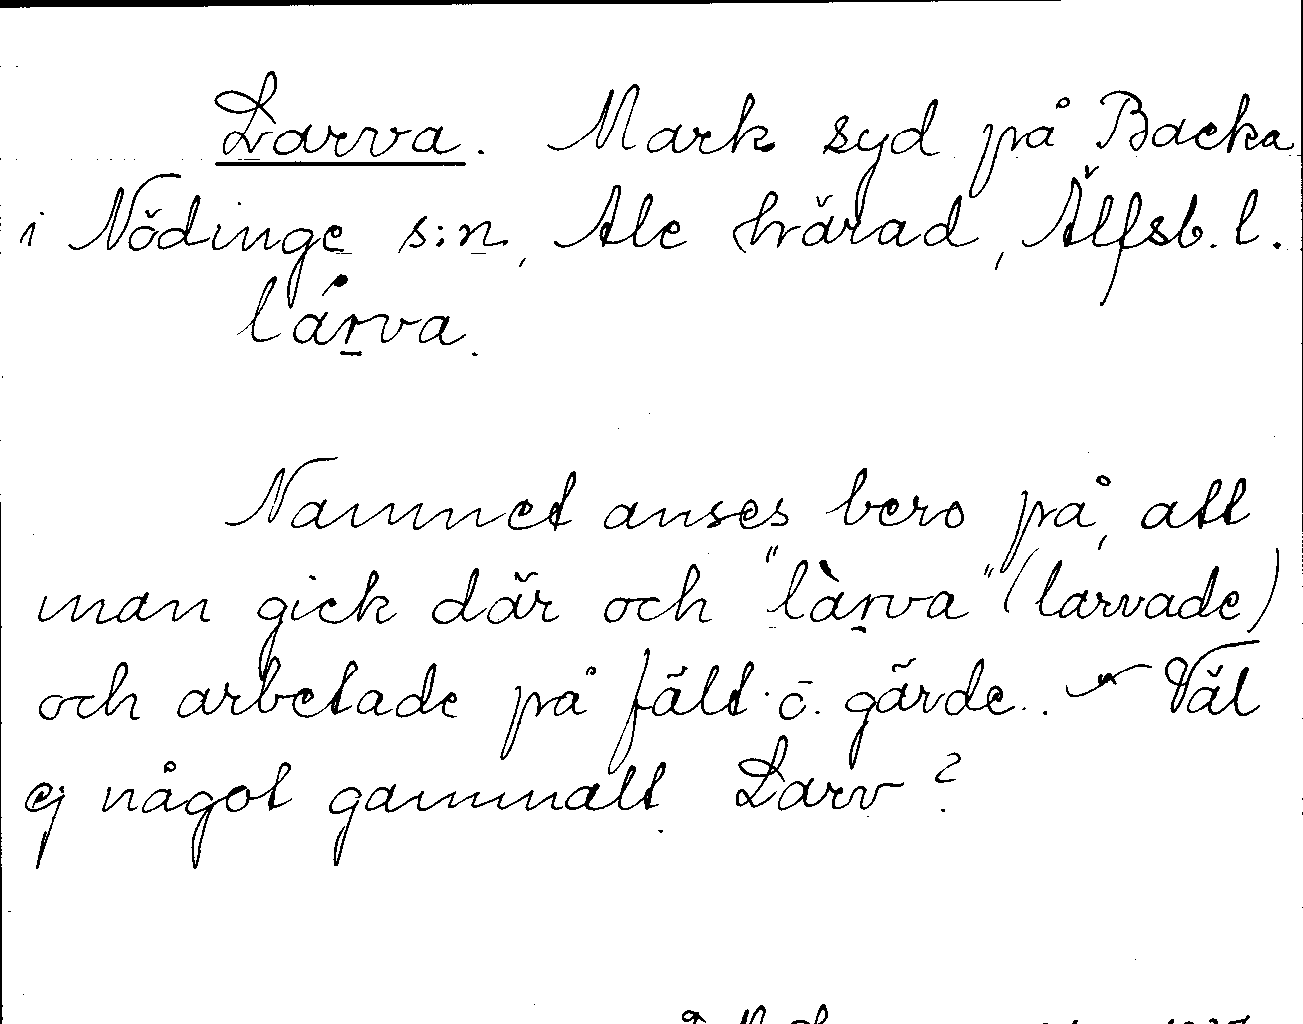 Larva. Mark syd på Backa
i Nödinge s:n, Ale härad, Älfsb. l.
lárva.
Namnet anses bero på, att
man gick där och "làrva" (larvade)
och arbetade på fält o. gärde. - Väl
ej något gammalt Larv?